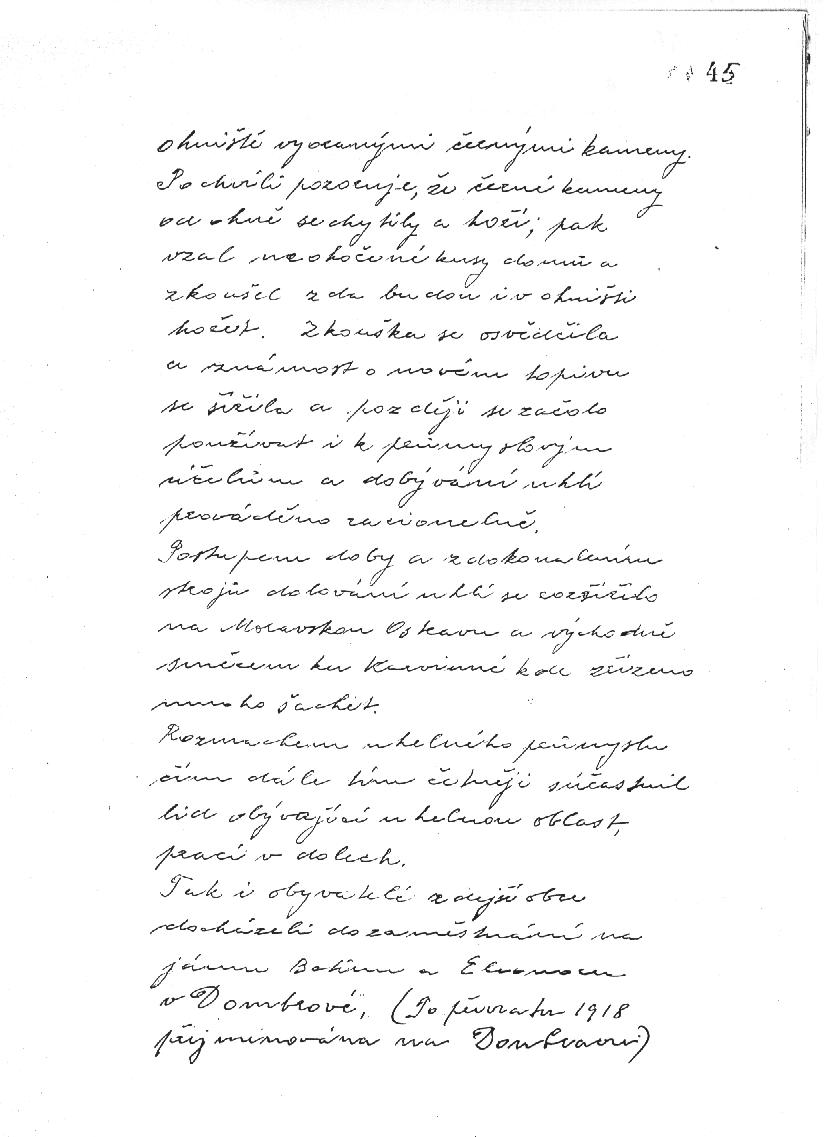 45
ohniště vyoranými černými kameny.
Po chvíli pozoruje, že černé kameny
od ohně se chytily a hoří; pak
vzal neohořené kusy domů a
zkoušel zda budou i v ohništi
hořet. Zkouška se osvědčila
a známost o novém topivu
se šířila a později se začalo
používat i k průmyslovým
účelům a dobývání uhlí
prováděno racionelně.
Postupem doby a zdokonalením
strojů dolování uhlí se rozšířilo
na Moravskou Ostravu a východně
směrem ku Karvinné kde zřízeno
mnoho šachet.
Rozmachem uhelného průmyslu
čím dále tím četněji súčastnil
lid obývající uhelnou oblast,
prací v dolech.
Tak i obyvatelé zdejší obce
docházeli do zaměstnání na
jámu Betinu a Eleonoru
v Dombrové, (Po převratu 1918
přejmenována na Doubravu)